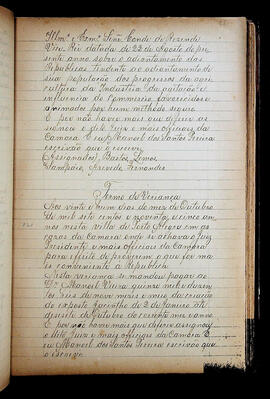 Illmº e Exmº Senr. Conde de Rezende
Vice Rei datada de 22 de Agosto do pre
sente anno sobre o adiantamento das
Republicas tendente ao adiantamento de
sua população dos progressos da agri
cultura da Industria
influencia do Commercio favorecidos e
animados por hum methodo seguro
E por não haver mais que deferir as
signou o dito Juiz e mais officiaes da
Camara E eu Manoel dos Santos Pereira
escrivão que o escrevi
Assignados Bastos Lemos
Sampaio, Azevedo Fernandes
Termo de Veriança
Aos vinte e hum dias do mez de Outubro
de mil sete centos e noventa e cinco an
nos nesta villa de Porto Alegre em os
paços da Camara onde se achava o Juiz
Presidente e mais officiaes da Camara
para effeito de proverem o que for ma
is conveniente a Republica
Nesta veriança se mandou pagar ao
Manoel Vieira quinze mil e duzen
tos reis de nove mezes e meio da criação
do exposto Jacintho de 2 de Janeiro até
deseseis de Outubro do corrente anno
E por não haver mais que deferir assignou
o dito Juiz e mais officiaes da Camara E
eu Manoel dos Santos Pereira escrivão que
o escrevi